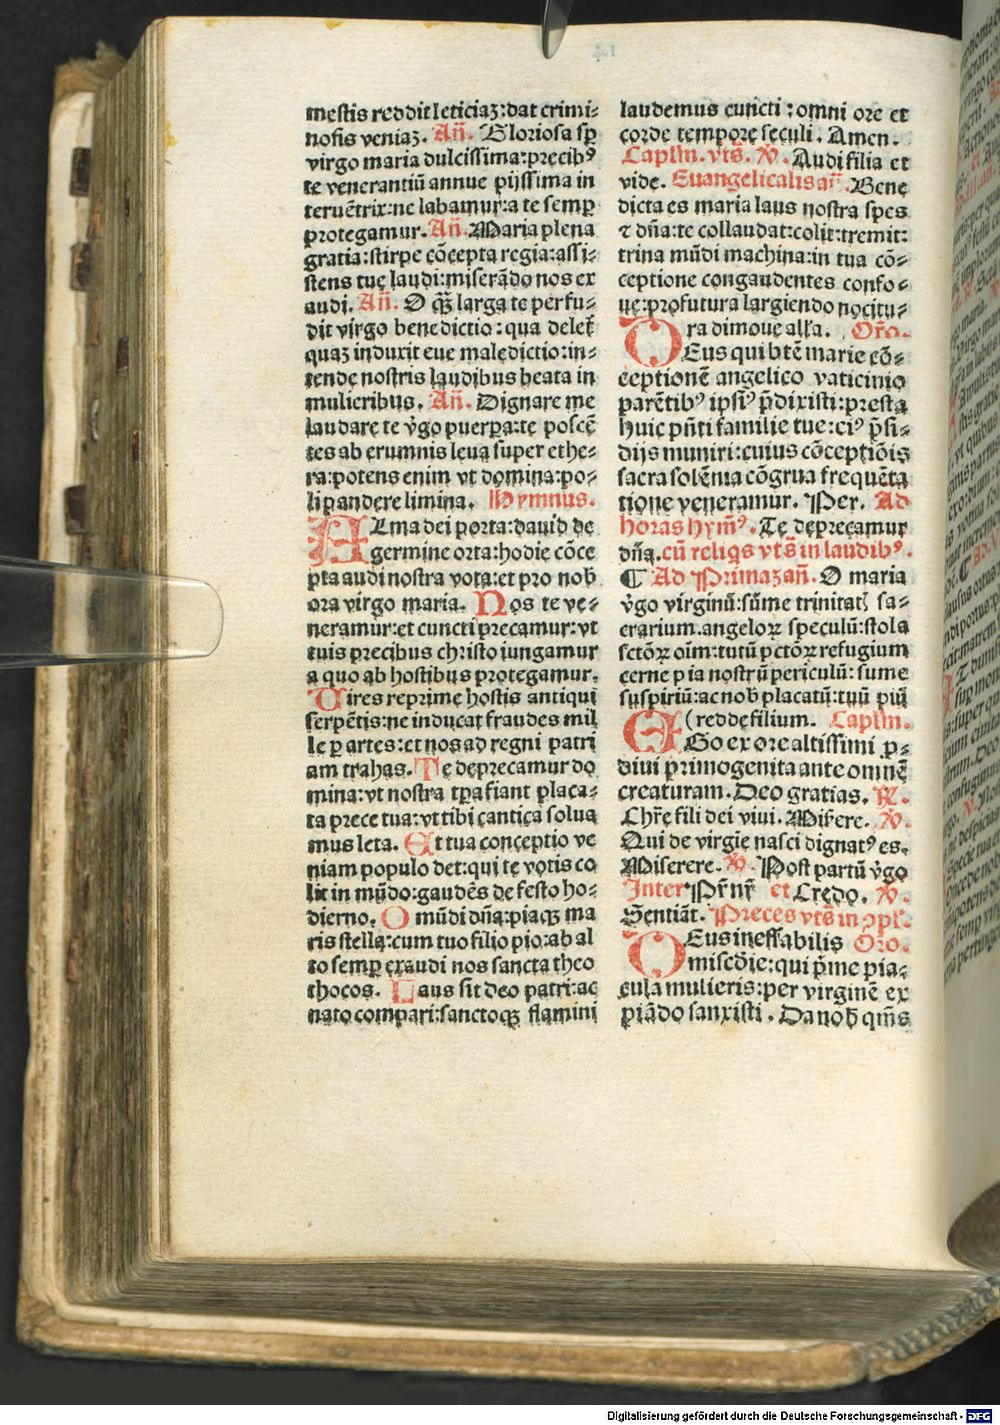 mestis reddit leticiaꝫ:dat crimi⸗
nosis veniaꝫ. Añ. Gloriosa sꝑ
virgo maria dulcissima:precibꝰ
te venerantiū annue pijssima in
teruētrix:ne labamur:a te semꝑ
protegamur. Añ. Maria plena
gratia:stirpe cōcepta regia:assi⸗
stens tuę laudi:miserādo nos ex
audi. Añ. O q̄ꝫ larga te perfu⸗
dit virgo benedictio:qua delet̄
quaꝫ induxit eue maledictio:in⸗
tende nostris laudibus beata in
mulieribus. Añ. Dignare me
laudare te v̓go puerꝑa:te poscē
tes ab erumnis leua super ethe⸗
ra:potens enim vt domina:po⸗
li pandere limina. Hymnus.
ALma dei porta:dauid de
germine orta:hodie cōce
pta audi nostra vota:et pro nob̄
ora virgo maria. Nos te ve⸗
neramur:et cuncti precamur:vt
tuis precibus christo iungamur
a quo ab hostibus protegamur.
Uires reprime hostis antiqui
serpētis:ne inducat fraudes mil
le ꝑ artes:et nos ad regni patri
am trahas. Te deprecamur do
mina:vt nostra tꝑa fiant placa⸗
ta prece tua:vt tibi cantica solua
mus leta. Et tua conceptio ve
niam populo det:qui te votis co
lit in mūdo:gaudēs de festo ho⸗
dierno. O mūdi dña:piaqꝫ ma
ris stella:cum tuo filio pio:ab al
to semꝑ exaudi nos sancta theo
thocos. Laus sit deo patri:ac
nato compari:sanctoqꝫ flamini
laudemus cuncti:omni ore et
corde tempore seculi. Amen.
Caplm̄. vts̄. ℣. Audi filia et
vide. Euangelicalis añ. Bene
dicta es maria laus nostra spes
⁊ dña:te collaudat:colit:tremit:
trina mūdi machina:in tua cō⸗
ceptione congaudentes confo⸗
ue:profutura largiendo nocitu⸗
ra dimoue alla. Oro.
DEus qui btē marie cō⸗
ceptionē angelico vaticinio
parētibꝰ ipsiꝰ p̄dixisti:presta
huic pn̄ti familie tue:eiꝰ p̄si⸗
dijs muniri:cuius cōceptiōis
sacra solēnia cōgrua frequēta
tione veneramur. Per. Ad
horas hym̄ꝰ. Te deprecamur
dña.cū reliqs vts̄ in laudibꝰ.
¶ Ad Primaꝫ añ. O maria
v̓go virginū:sūme trinitatꝭ sa⸗
crarium.angeloꝝ speculū:stola
sctōꝝ oīm:tutū pctōꝝ refugium
cerne pia nostrū periculū:sume
suspiriū:ac nob̄ placatū:tuū piū
(redde filium. Caplm̄.
EGo ex ore altissimi ꝓ⸗
diui primogenita ante omnē
creaturam. Deo gratias. ℟.
Chr̄e fili dei viui. Miserere. ℣.
Qui de virgīe nasci dignatꝰ es.
Miserere. ℣. Post partū v̓go
Inter Pr̄ nr̄ et Credo. ℣.
Sentiāt. Preces vts̄ in ↄpl̄.
DEus ineffabilis Oro.
miscdie:qui p̄me pia⸗
cula mulieris:per virginē ex
piādo sanxisti. Da nob̄ qm̄s
Digitalisierung gefördert durch die Deutsche Forschungsgemeinschaft - DFG